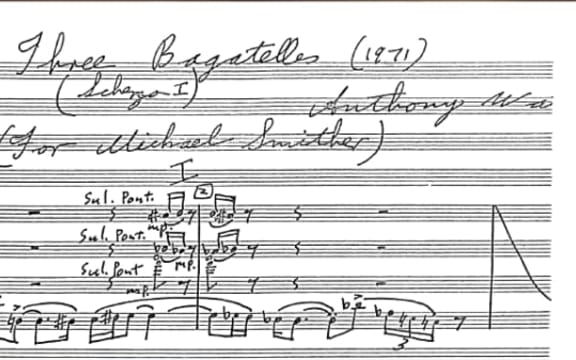 Three Bagatelles (1971)
(Scherzo I)
Anthony
(For Michael Smither)
I
Sul. Pont.
2
mp.
Sul. Pont.
mp.
Sul Pont
mp.
3